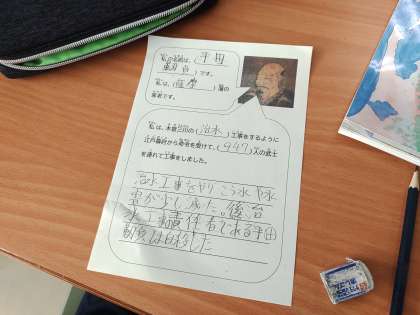 私の名前は、(平田
靱負)です。
私は、(薩摩)藩の
家老です。
私は、木曽三川の(治水)工事をするように
江戸幕府から命令を受けて、(947)人の武士
を連れて工事をしました。
治水工事をやりこう水や水
害が少し減った。後台
水工事責任者である平田
靱負は自殺した